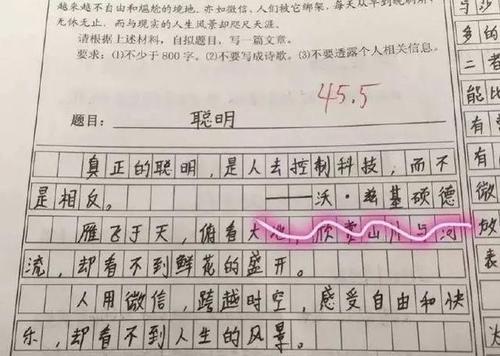 越来越不自由和尴尬的境地,亦如微信,人们被它绑架,每天从早到晚刷屏,
无休无止,而与现实的人生风景却咫尺天涯。
请根据上述材料,自拟题目,写一篇文章。
要求:(1)不少于800字。(2)不要写成诗歌。(3)不要透露个人相关信息。
45.5
题目: 聪明
真正的聪明,是人去控制科技,而不
是相反。
——沃·兹基硕德
雁飞于天,俯看大地,欣赏山川与河
流,却看不到鲜花的盛开。
人用微信,跨越时空,感受自由和快
乐,却看不到人生的风景。
多的
二者
能比
有
有
微
放
表